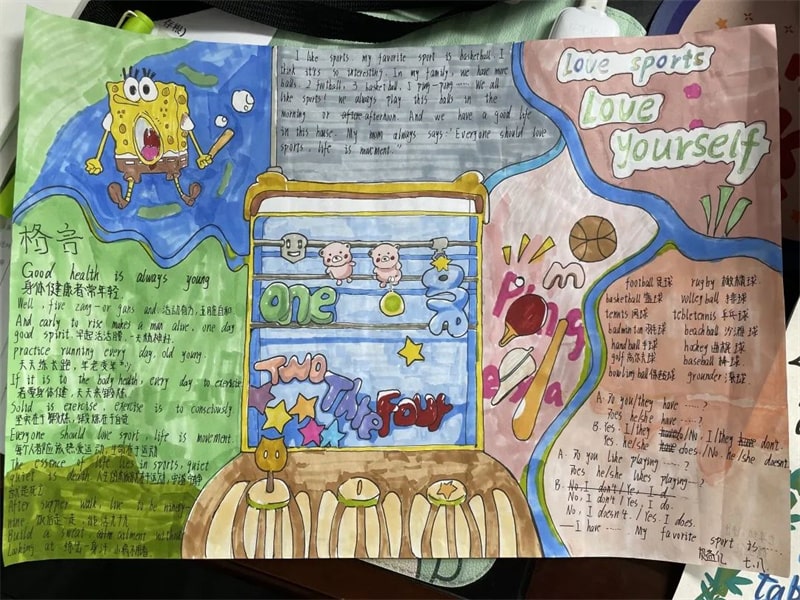 I like sports my favorite sport is basketball. I
think it's so interesting. In my family, we have more
balls. 2 football, 3 basketball, 1 ping-pong ...... We all
like sports! we always play this balls in the
morning or afternoon. And we have a good life
in this house. My mum always says: "Everyone should love
sports, life is movement."
Love sports
Love
yourself
格言
Good health is always young
身体健康者常年轻.
Well, five zang- or gans and 活动有力,五脏自和
And early to rise makes a man alive, one day
good spirit. 早起活活腰,一天精神好.
practice running every day, old young.
天天练长跑,年老变年少
If it is to the body health, every day to exercise
若要身体健,天天来锻炼.
Solid is exercise, exercise is to consciously.
坚实在于锻炼,锻炼在于自觉
Everyone should love sport, life is movement.
每个人都应该热爱运动,生命在于运动
The essence of life lies in sports, quiet
quiet is death.
After supper walk, live to be ninety-
nine.
Build a sweat, calm
Looking at
one
one
Two
Three
Four
Ping
football 足球 rugby 橄榄球
basketball 篮球 volleyball 排球
tennis 网球 tebletennis 乒乓球
badminton 羽球 beachball 沙滩球
handball 手球 hockey 曲棍球
golf 高尔夫球 baseball 棒球
bowling ball 保龄球 grounder 滚球
A: Do you/they have ......?
Does he/she have ......?
B: Yes. I/they do/No, I/they don't.
Yes. he/she does/No. he/she doesn't
A: Do you like playing ......?
Does he/she likes playing ......?
B:
No, I don't/Yes, I do.
No, I doesn't./Yes. I does.
—I have ...... My favorite sport is ......
七.八